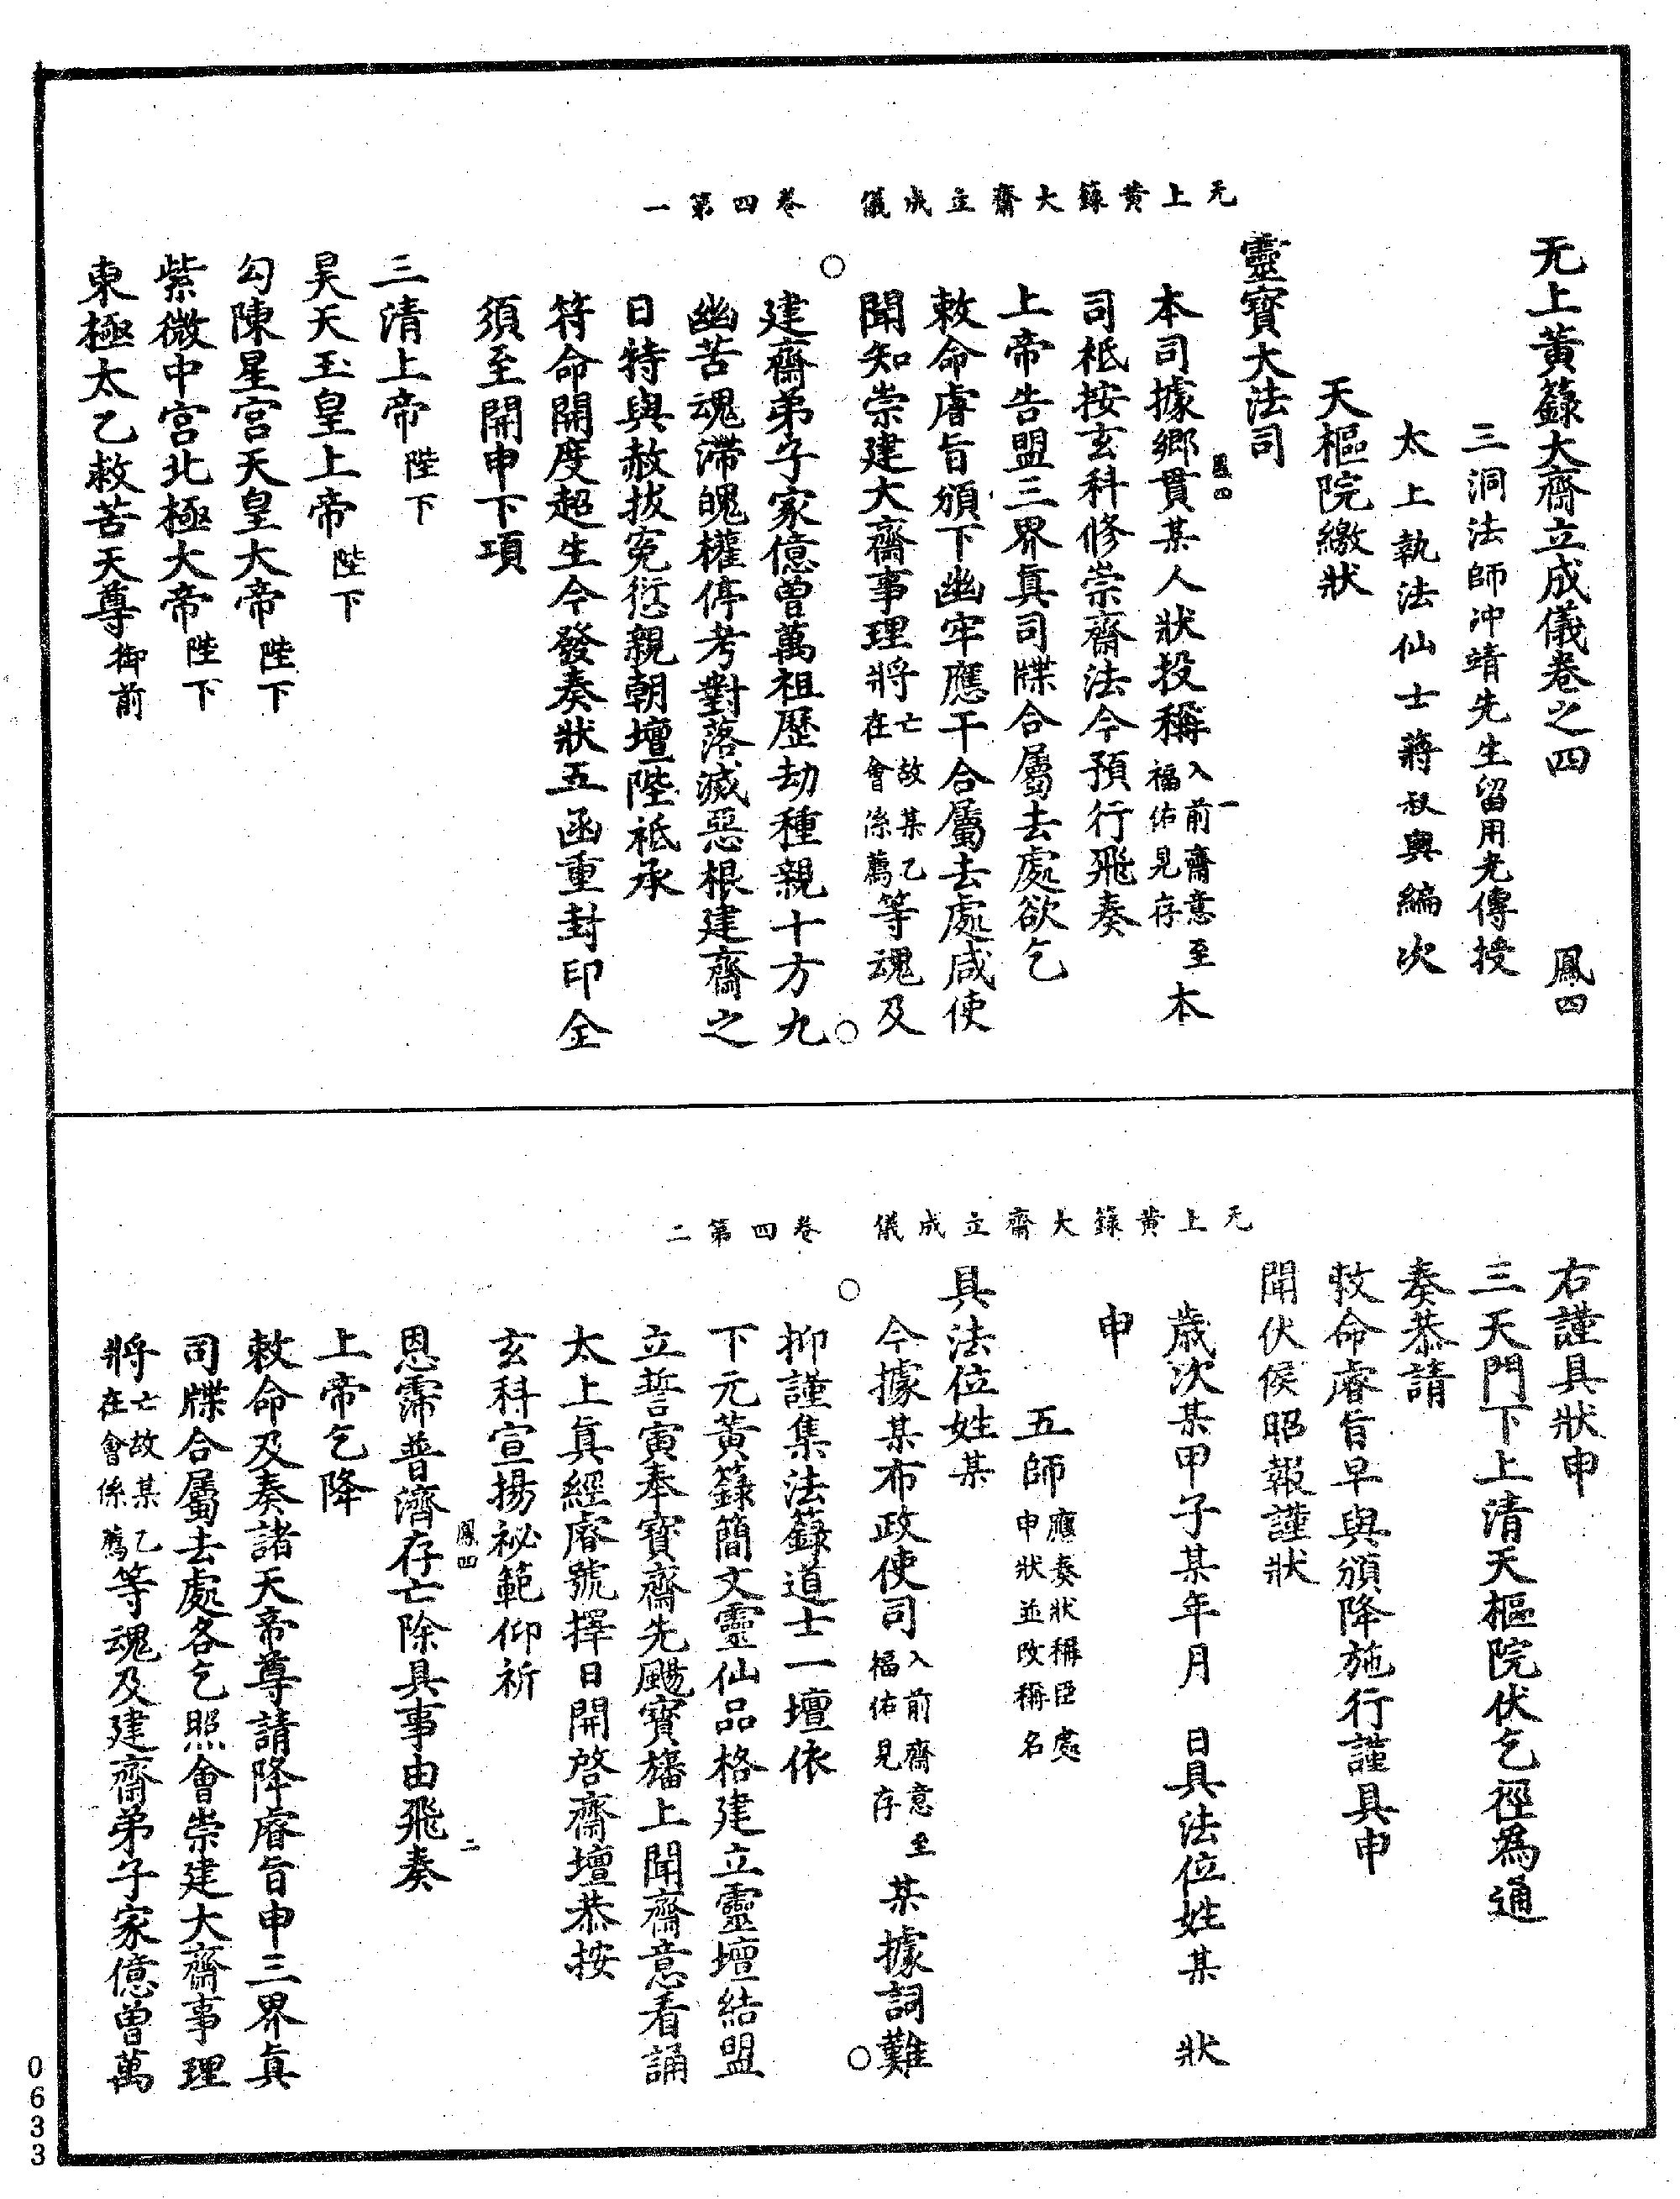 无上黃籙大齋立成儀　卷四第一
无上黃籙大齋立成儀卷之四　鳳四
三洞法師冲靖先生留用光傳授
太上執法仙士蔣叔輿編次
天樞院繳狀
靈寶大法司
本司據鄉貫某人狀投稱入前齋意至福佑見存本
鳳四　一
司祇按玄科修崇齋法今預行飛奏
上帝告盟三界真司牒合屬去處欲乞
敕命睿旨頒下幽牢應干合屬去處咸使
聞知崇建大齋事理將亡故某乙在會係薦等魂及
建齋弟子家億曾萬祖歷劫種親十方九
幽苦魂滯魄權停考對落滅惡根建齋之
日特與赦拔寃愆親朝壇陛祗承
符命開度超生今發奏狀五函重封印全
須至開申下項
三清上帝陛下
昊天玉皇上帝陛下
勾陳星宮天皇大帝陛下
紫微中宮北極大帝陛下
東極太乙救苦天尊御前
无上黃籙大齋立成儀　卷四第二
右謹具狀申
三天門下上清天樞院伏乞徑為通
奏恭請
敕命睿旨早與頒降施行謹具申
聞伏候昭報謹狀
歲次某甲子某年月　日具法位姓某　狀
申
五師應奏狀稱臣處申狀並改稱名
具法位姓某
今據某布政使司入前齋意至福佑見存某據詞難
抑謹集法籙道士一壇依
下元黃籙簡文靈仙品格建立靈壇結盟
立誓寅奉寶齋先颺寶旛上聞齋意看誦
太上真經睿號擇日開啓齋壇恭按
玄科宣揚祕範仰祈
恩霈普濟存亡除具事由飛奏
鳳四　二
上帝乞降
敕命及奏諸天帝尊請降睿旨申三界真
司牒合屬去處各乞照會崇建大齋事理
將亡故某乙在會係薦等魂及建齋弟子家億曾萬
0633